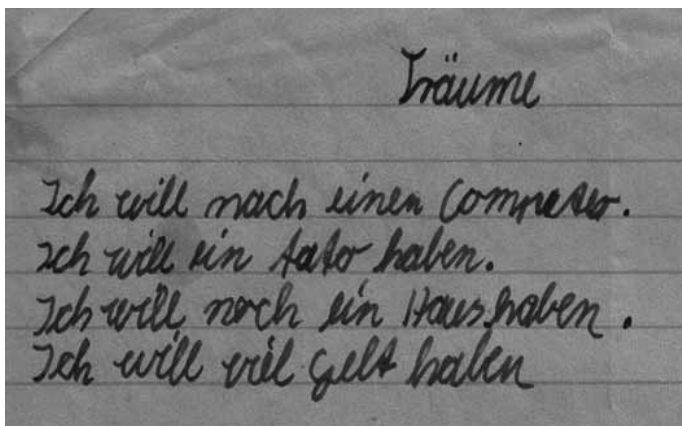 Träume
Ich will nach einen Computer.
Ich will ein Auto haben.
Ich will noch ein Haus haben.
Ich will viel gelt haben